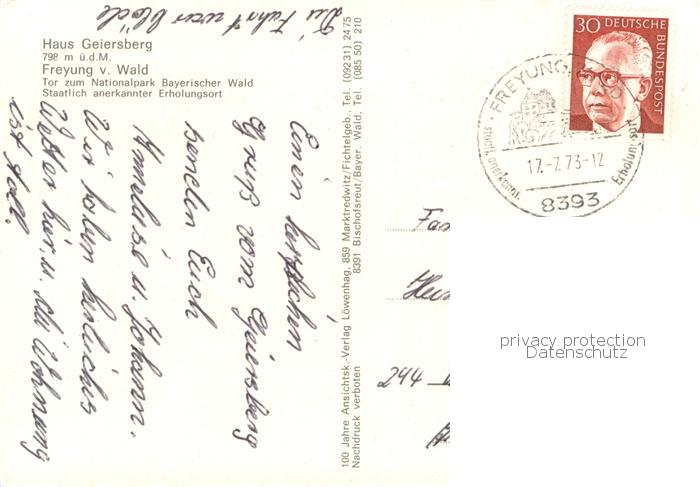 Haus Geiersberg
798 m ü.d.M.
Freyung v. Wald
Tor zum Nationalpark Bayerischer Wald
Staatlich anerkannter Erholungsort
Einen herzlichen
Gruß vom Geiersberg
senden Euch
Anneliese u. Johann.
Wir haben herrliches
Wetter hier u. die Wohnung
ist toll.
Die Fahrt war blöde
100 Jahre Ansichtsk.-Verlag Löwenhag, 859 Marktredwitz/Fichtelgeb. Tel. (092 31) 24 75
Nachdruck verboten 8391 Bischofsreut/Bayer. Wald. Tel. (085 50) 210
30 DEUTSCHE BUNDESPOST
FREYUNG
staatl. anerkannt. Erholungsort
17.-7.73-12
8393
Fam
244
privacy protection
Datenschutz